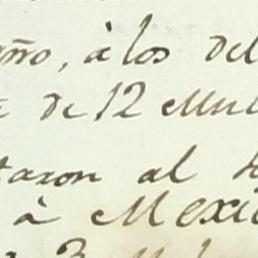 año, à los del
de 12 Mul
taron al
à Mexi
3